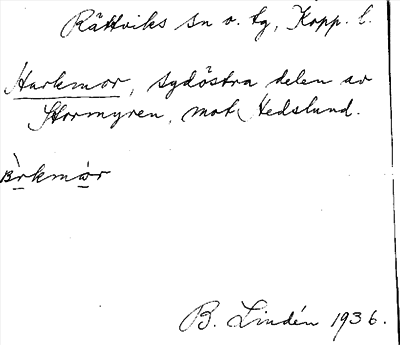 Rättviks sn o. tg, Kopp. l.
Starkmor, sydöstra delen av
Stormyren, mot Hedslund.
B. Lindén 1936.